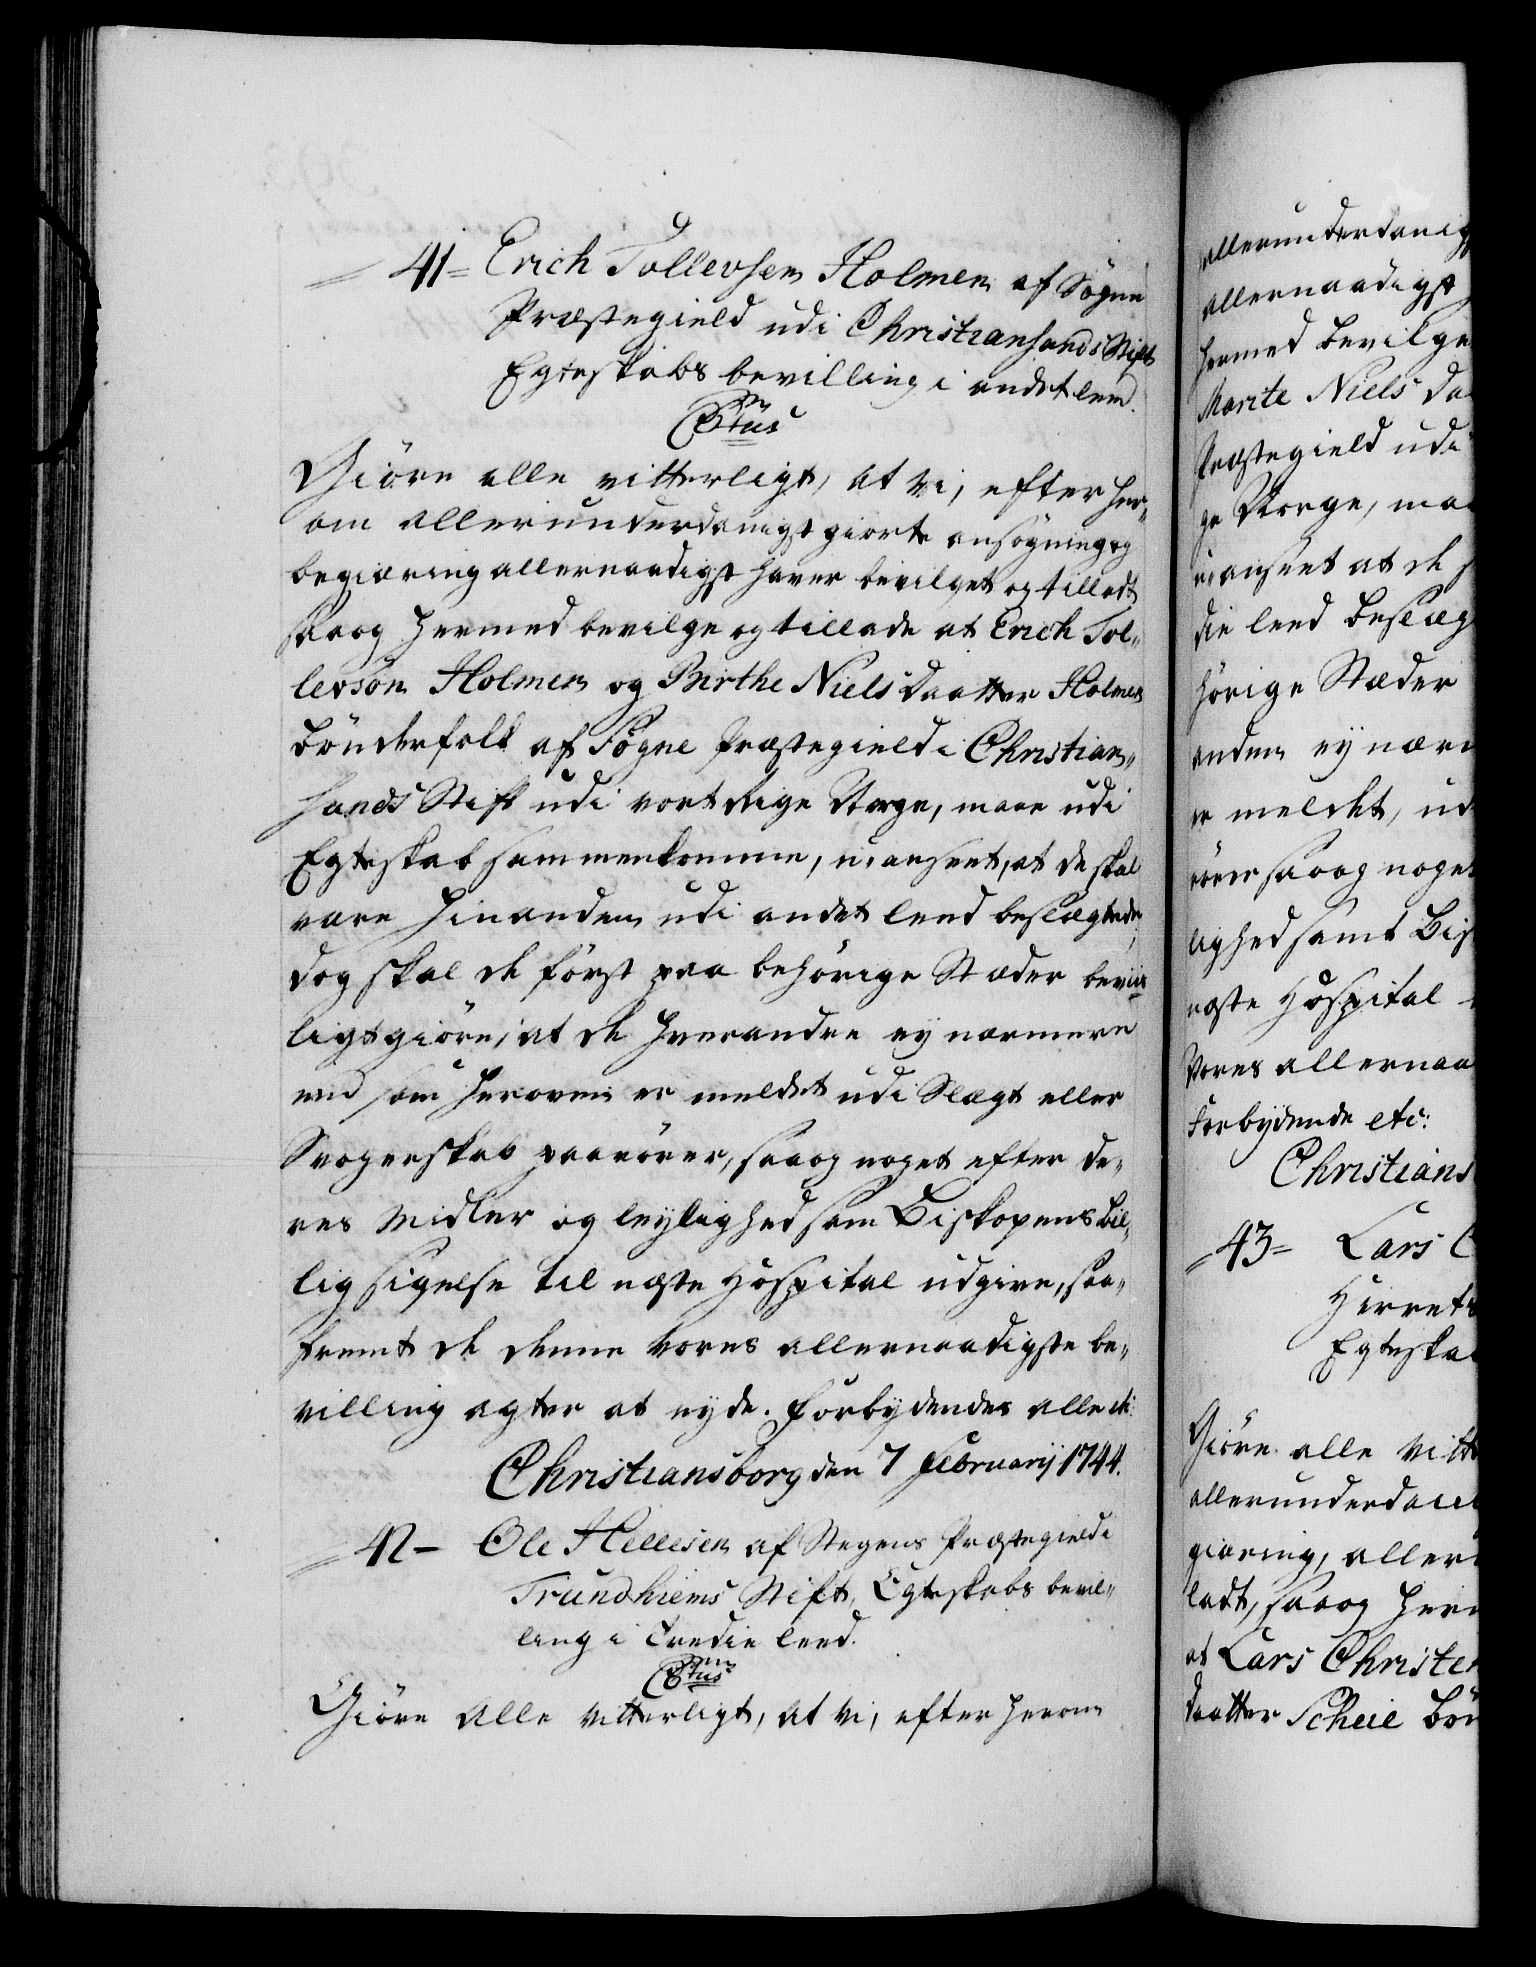 41 = Erich Tollevsen Holmen af Sögne
Præstegield udi Christiansands Stift
Egteskabs bevilling i andet leed.
Giöre alle vitterligt, at vi, efter her„
om allerunderdanigst giorte ansögning og
begiæring allernaadigst haver bevilget og tilladt
saa og hermed bevilge og tillade at Erich Tol„
levsön Holmen og Birthe Niels daatter Holmen
bönderfolk af Sögne Præstegield i Christian„
sands Stift udi vort Rige Norge, maae udi
Egteskab sammenkomme, u-anseet, at de skal
være hinanden udi andet leed beslægtede,
dog skal de först paa behörige Stæder beviis
ligtgiöre, at de hverandre ey nærmere
end som heroven er meldet udi Slægt eller
Svogerskab paarörer, saa og noget efter de„
res Midler og leylighed som Biskopens Bil„
lig sigelse til næste Hospital udgive, saa„
fremt de denne vores allernaadigste be„
villing agter at nyde. Forbydendes alle etc:
Christiansborg den 7 Februarij 1744.
42 – Ole Hellesen af Stegens Præstegield i
Trundhiems Stift, Egteskabs bevil„
ling i Tredie leed.
Giöre Alle vitterligt, at vi, efter herom
allerunderdanig
allernaadigst
hermed bevilge
Marite Niels da
Præstegield udi
ge Norge, maa
u-anseet at de s
die leed beslæg
hörige Stæder
anden ey nærm
er meldet, ud
rörer saa og noget
lighed samt Bis
næste Hospital
Vores allernaa
Forbydende etc:
Christians
43 = Lars C
Egteska
Giöre alle vitt
allerunderdani
giæring, aller
ladt, saa og her
at Lars Christen
daatter Scheie bön